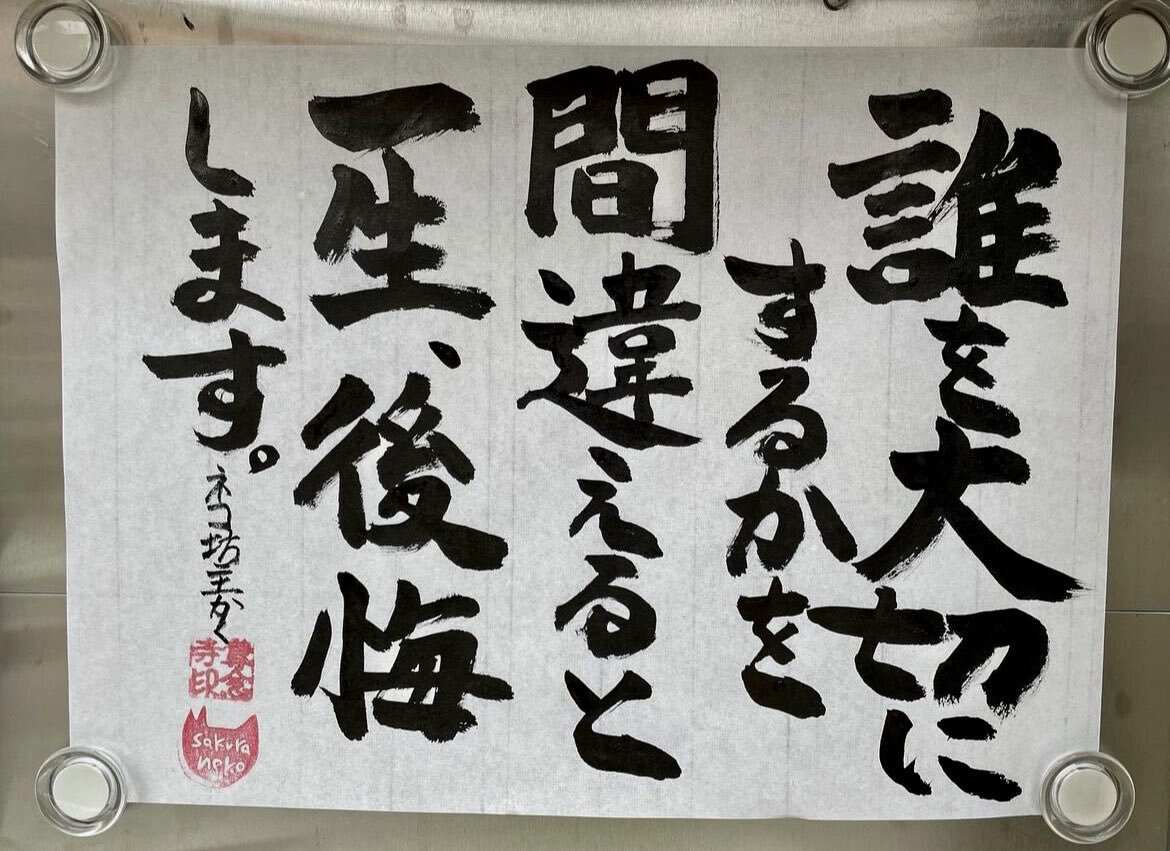 誰を大切に
するかを
間違えると
一生、後悔
します。
ネコ坊主かく
寺印
sakura
neko